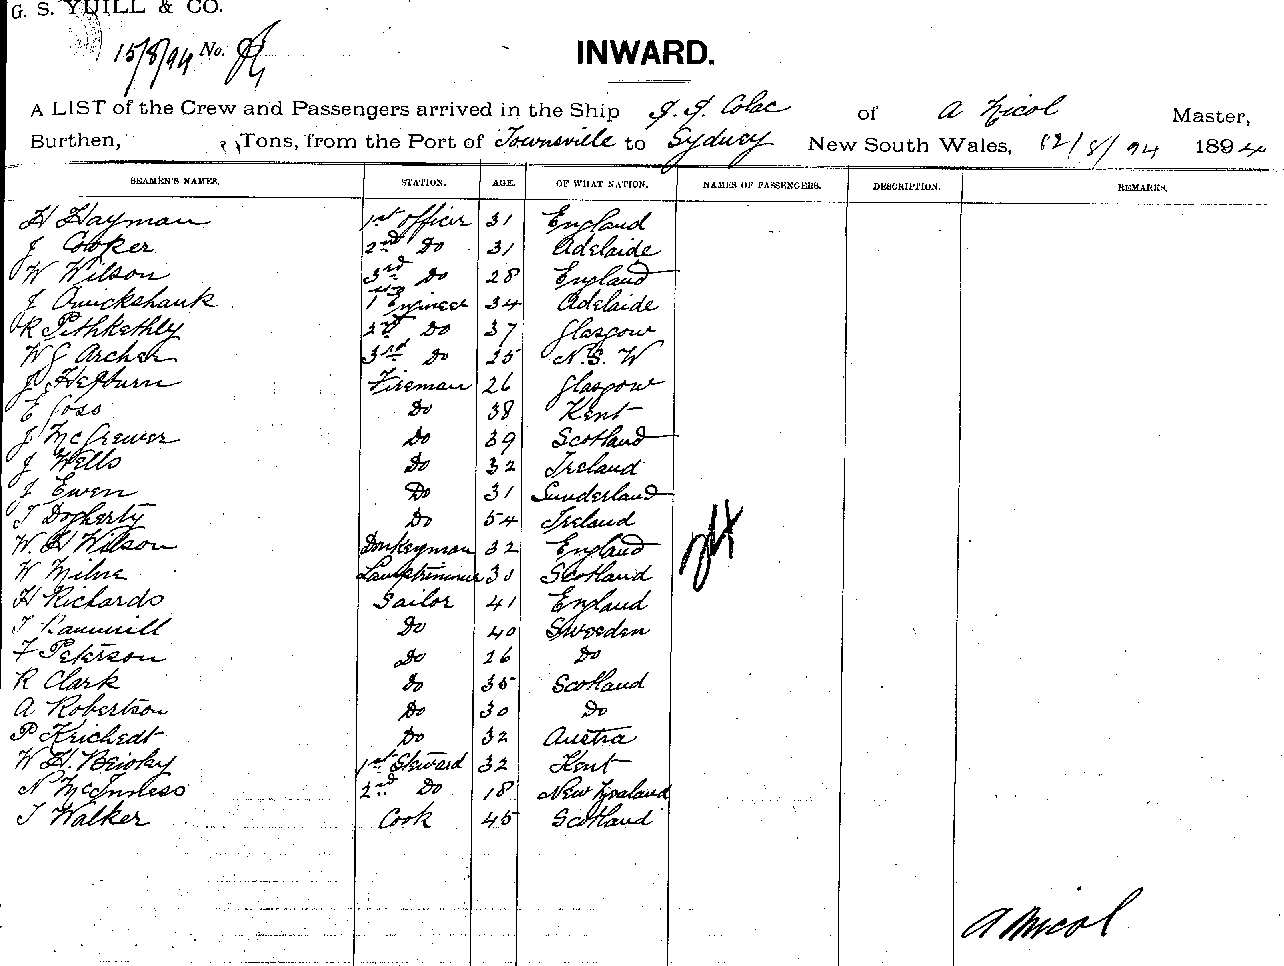 G. S. YUILL & CO.
15/8/94 No.
INWARD.
A LIST of the Crew and Passengers arrived in the Ship Colac of A Nicol Master,
Burthen, Tons, from the Port of Townsville to Sydney New South Wales, 12/8/94 1894
SEAMEN'S NAMES. STATION. AGE. OF WHAT NATION. NAMES OF PASSENGERS. DESCRIPTION. REMARKS.
H Hayman 1st Officer 31 England
J Cooker 2nd Do 31 Adelaide
W Wilson 3rd Do 28 England
J Cruickshank 1st Engineer 34 Adelaide
R Pithkethly 2nd Do 37 Glasgow
W G Archer 3rd Do 25 N.S.W
J Hepburn Fireman 26 Glasgow
E Goss Do 38 Kent
J McGrewer Do 39 Scotland
J Wells Do 32 Ireland
J Ewen Do 31 Sunderland
T Dogherty Do 54 Ireland
W. H Wilson Donkeyman 32 England
W Milne Lamptrimmer 30 Scotland
H Richards Sailor 41 England
T Do 40 Sweeden
F Peterson Do 26 Do
R Clark Do 35 Scotland
A Robertson Do 30 Do
P Do 32 Austra
W H. 1st Steward 32 Kent
N McInness 2nd Do 18 New Zealand
T Walker Cook 45 Scotland
A Nicol